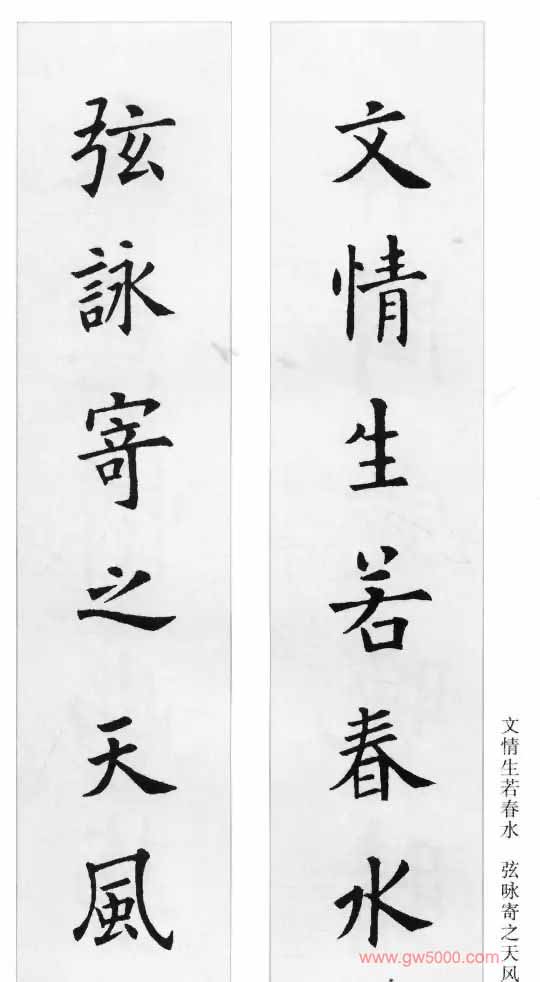 文情生若春水
弦詠寄之天風
文情生若春水　弦咏寄之天风
www.gw5000.com